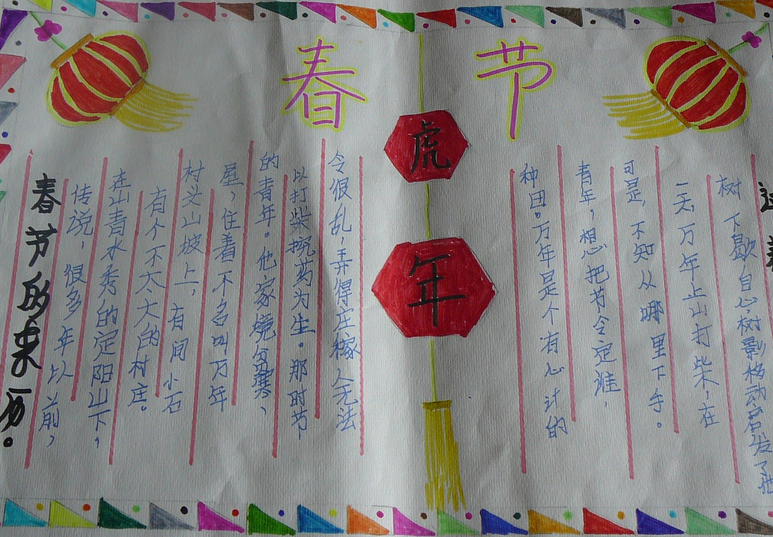 春节
虎年
春节的来历。
传说，很多年以前，
在山青水秀的定阳山下，
有个不太大的村庄。
村头山坡上，有间小石
屋，住着个名叫万年
的青年。他家境贫寒，
以打柴挖药为生。那时节
令很乱，弄得庄稼人无法
种田。万年是个有心计的
青年，想把节令定准，
可是，不知从哪里下手。
一天，万年上山打柴，在
树下歇息，树影移动启发了他